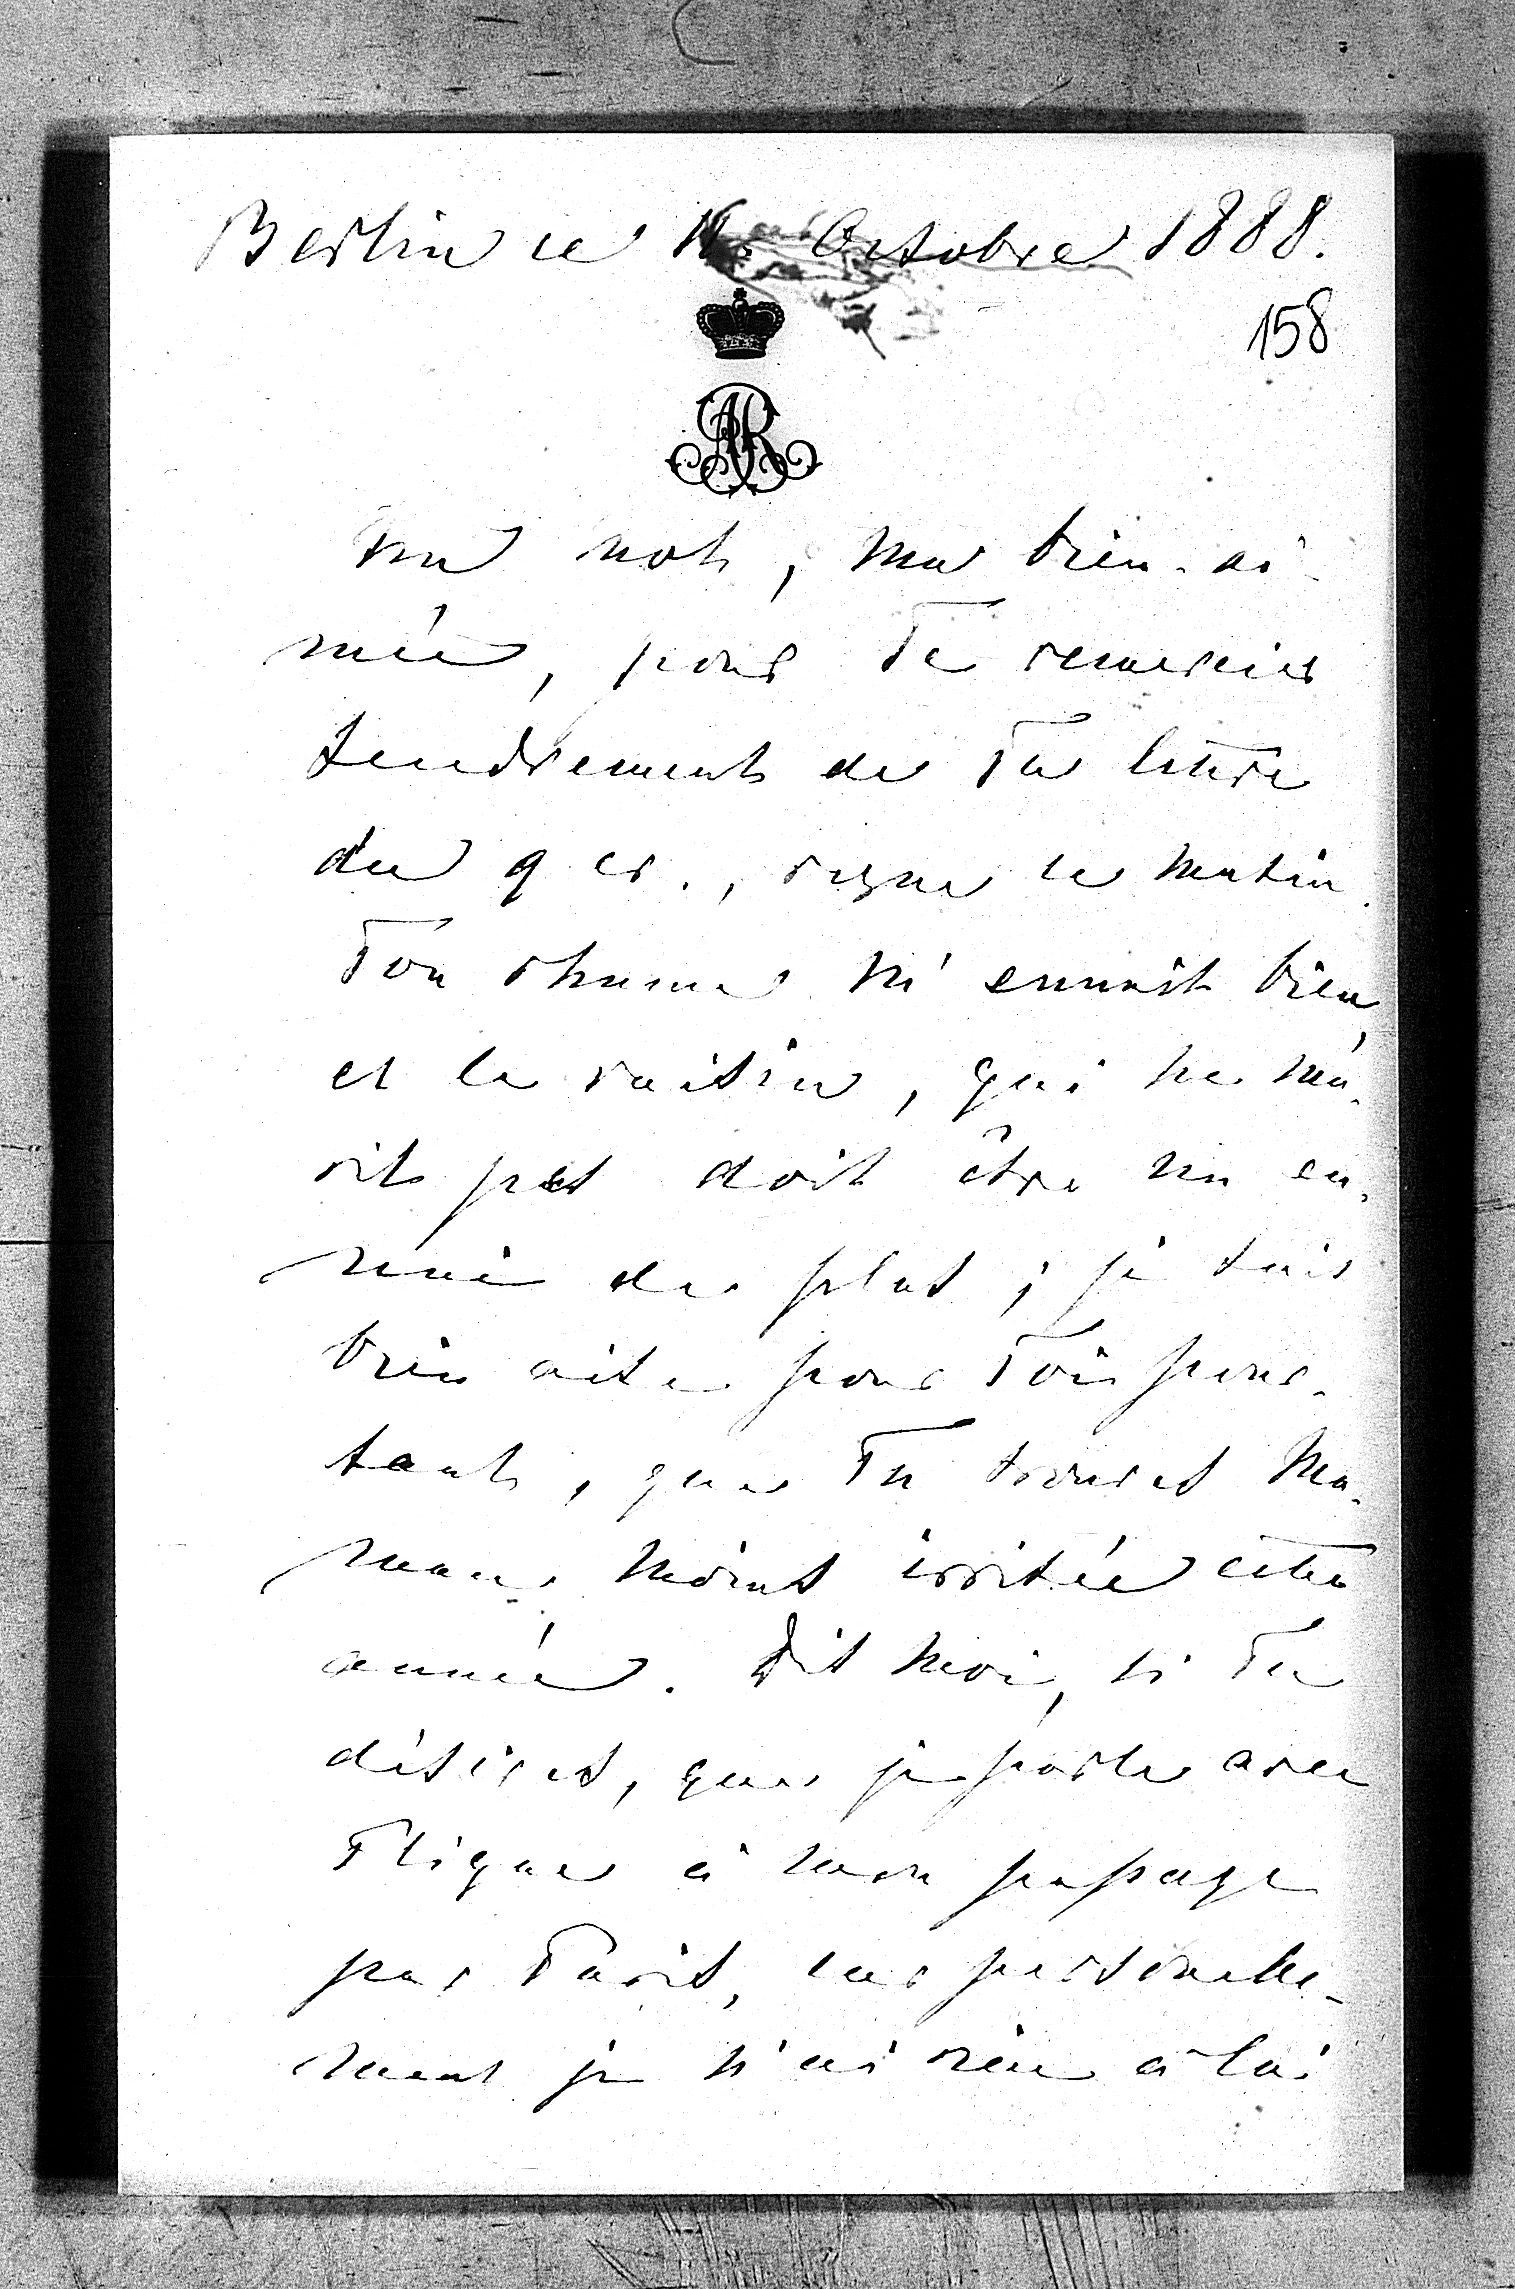 Berlin ce 11. Octobre 1888.
158
AR
Un mot, ma bien-ai-
mée, pour Te remercier
tendrement de Ta lettre
du 9 cr., reçue ce matin.
Ton rhume m'ennuit bien,
et le raisin, qui ne mu-
rit pas doit être un en-
nui de plus; je suis
bien aise pour Toi pour-
tant, que Tu trouves Ma-
man moins irritée cette
année. Dis moi, si Tu
désires, que je parle avec
à mon passage
par Paris, car personelle-
ment je n'ai rien à lui